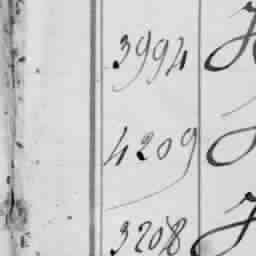 3994
4209
3208